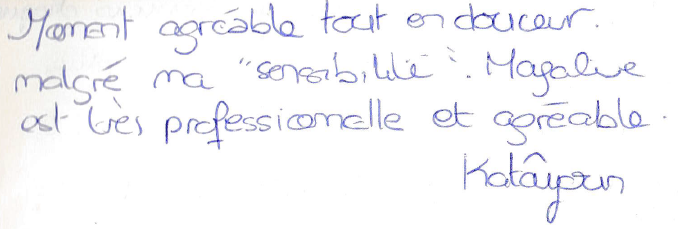 Moment agréable tout en douceur.
malgré ma "sensibilité". Magalie
est très professionnelle et agréable.
Katâyoun